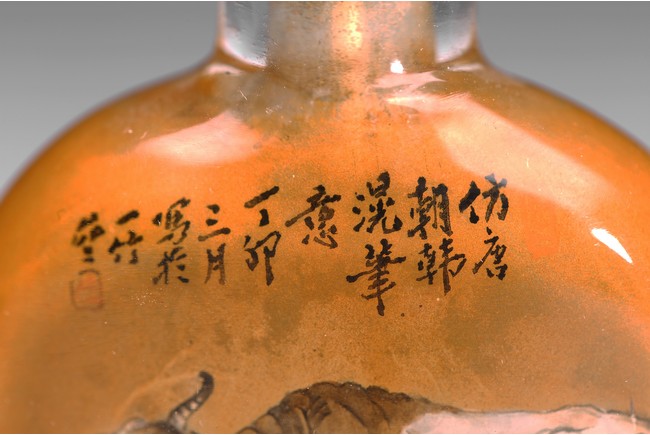 仿唐
朝韓
滉筆
意
丁卯
三月
寫於
一竹